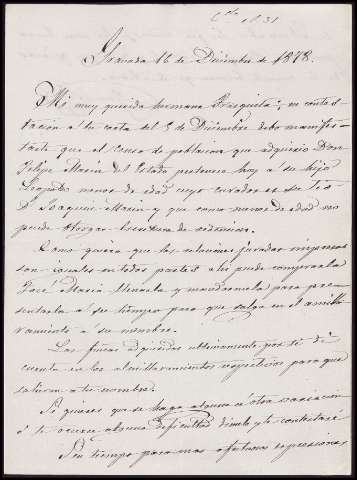 Granada 16 de Diciembre de 1878.
Mi muy querida hermana Frasquita; en contes-
tacion á tu carta del 5 de Diciembre debo manifes-
tarte que el Censo de poblacion que adquirió Don
Felipe Marin del Estado pertenece hoy a su hijo
Leopoldo menor de edad cuyo curador es su Tio
D. Joaquin Marin y que como menor de edad no
puede otorgar escritura de
Como quiera que las relaciones juradas impresas
son iguales en todas partes á ti puede comprarla
José Maria y mandarmela para pre-
sentarla á su tiempo para que salga en el amilla-
ramiento á su nombre.
Las fincas adquiridas ultimamente por ti dí
cuenta en los amillaramientos respectivos para que
salieran a tu nombre.
Si quieres que se haga alguna ú otra variacion
ó te ocurre alguna dificultad dimelo y te contestaré
Sin tiempo para mas afectuosas expresiones